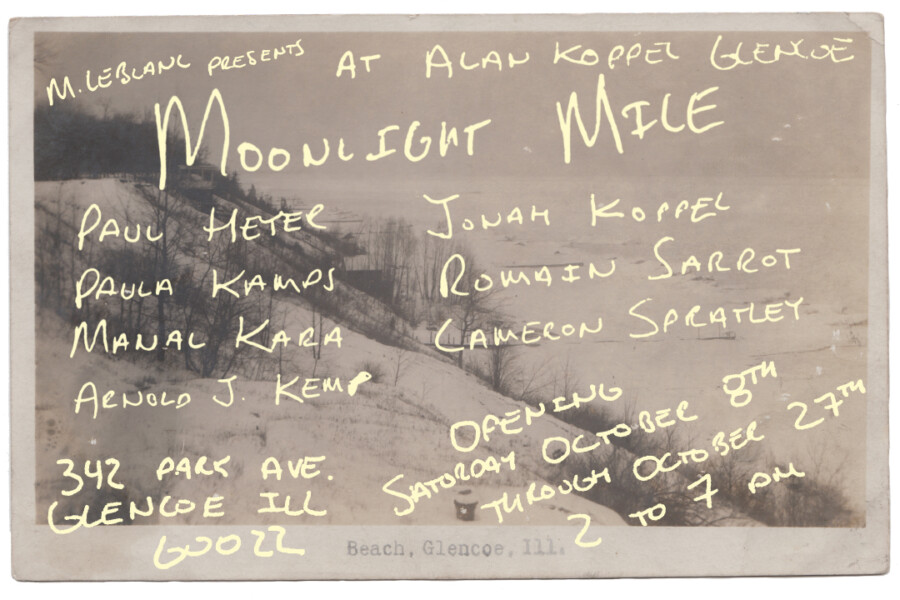 M. LEBLANC PRESENTS AT ALAN KOPPEL GLENCOE
MOONLIGHT MILE
PAUL HEYER
PAULA KAMPS
MANAL KARA
ARNOLD J. KEMP
JONAH KOPPEL
ROMAIN SARROT
CAMERON SPRATLEY
342 PARK AVE.
GLENCOE ILL
60022
OPENING
SATURDAY OCTOBER 8TH
THROUGH OCTOBER 27TH
2 TO 7 PM
Beach, Glencoe, Ill.